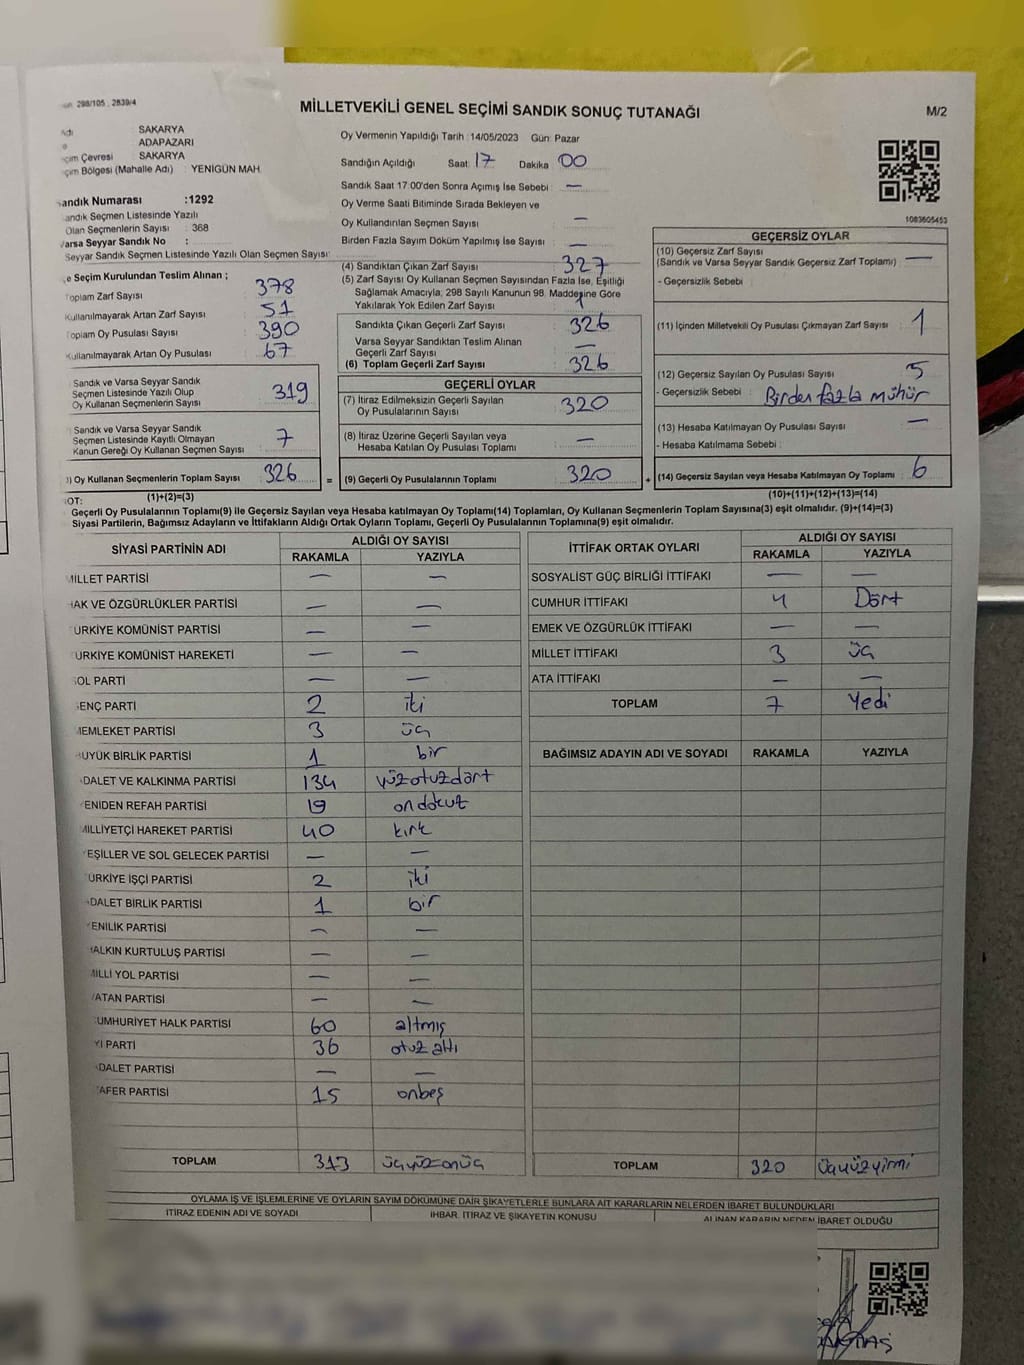 298/105 , 2839/4
MİLLETVEKİLİ GENEL SEÇİMİ SANDIK SONUÇ TUTANAĞI
M/2
SAKARYA
ADAPAZARI
Çevresi : SAKARYA
Bölgesi (Mahalle Adı) : YENİGÜN MAH
Oy Vermenin Yapıldığı Tarih :14/05/2023 Gün: Pazar
Sandığın Açıldığı Saat: 17 Dakika : 00
Sandık Saat 17:00'den Sonra Açımış İse Sebebi : —
Oy Verme Saati Bitiminde Sırada Bekleyen ve
Oy Kullandırılan Seçmen Sayısı : —
Birden Fazla Sayım Döküm Yapılmış İse Sayısı : —
andık Numarası :1292
andık Seçmen Listesinde Yazılı
Olan Seçmenlerin Sayısı : 368
arsa Seyyar Sandık No :
Seyyar Sandık Seçmen Listesinde Yazılı Olan Seçmen Sayısı:
e Seçim Kurulundan Teslim Alınan ;
Toplam Zarf Sayısı : 378
Kullanılmayarak Artan Zarf Sayısı : 51
Toplam Oy Pusulası Sayısı : 390
Kullanılmayarak Artan Oy Pusulası : 67
Sandık ve Varsa Seyyar Sandık
Seçmen Listesinde Yazılı Olup
Oy Kullanan Seçmenlerin Sayısı 319
Sandık ve Varsa Seyyar Sandık
Seçmen Listesinde Kayıtlı Olmayan
Kanun Gereği Oy Kullanan Seçmen Sayısı 7
) Oy Kullanan Seçmenlerin Toplam Sayısı 326
(1)+(2)=(3)
(4) Sandıktan Çıkan Zarf Sayısı : 327
(5) Zarf Sayısı Oy Kullanan Seçmen Sayısından Fazla İse, Eşitliği
Sağlamak Amacıyla; 298 Sayılı Kanunun 98. Maddesine Göre
Yakılarak Yok Edilen Zarf Sayısı : 1
Sandıkta Çıkan Geçerli Zarf Sayısı : 326
Varsa Seyyar Sandıktan Teslim Alınan
Geçerli Zarf Sayısı : —
(6) Toplam Geçerli Zarf Sayısı : 326
GEÇERLİ OYLAR
(7) İtiraz Edilmeksizin Geçerli Sayılan
Oy Pusulalarının Sayısı : 320
(8) İtiraz Üzerine Geçerli Sayılan veya
Hesaba Katılan Oy Pusulası Toplamı : —
= (9) Geçerli Oy Pusulalarının Toplamı : 320 +
1083605453
GEÇERSİZ OYLAR
(10) Geçersiz Zarf Sayısı
(Sandık ve Varsa Seyyar Sandık Geçersiz Zarf Toplamı) : —
- Geçersizlik Sebebi :
(11) İçinden Milletvekili Oy Pusulası Çıkmayan Zarf Sayısı : 1
(12) Geçersiz Sayılan Oy Pusulası Sayısı : 5
- Geçersizlik Sebebi : Birden fazla mühür
(13) Hesaba Katılmayan Oy Pusulası Sayısı : —
- Hesaba Katılmama Sebebi :
(14) Geçersiz Sayılan veya Hesaba Katılmayan Oy Toplamı : 6
(10)+(11)+(12)+(13)=(14)
OT:
Geçerli Oy Pusulalarının Toplamı(9) ile Geçersiz Sayılan veya Hesaba katılmayan Oy Toplamı(14) Toplamları, Oy Kullanan Seçmenlerin Toplam Sayısına(3) eşit olmalıdır. (9)+(14)=(3)
Siyasi Partilerin, Bağımsız Adayların ve İttifakların Aldığı Ortak Oyların Toplamı, Geçerli Oy Pusulalarının Toplamına(9) eşit olmalıdır.
SİYASİ PARTİNİN ADI ALDIĞI OY SAYISI
RAKAMLA YAZIYLA
MİLLET PARTİSİ — —
HAK VE ÖZGÜRLÜKLER PARTİSİ — —
ÜRKİYE KOMÜNİST PARTİSİ — —
ÜRKİYE KOMÜNİST HAREKETİ — —
SOL PARTİ — —
GENÇ PARTİ 2 iki
MEMLEKET PARTİSİ 3 üç
BÜYÜK BİRLİK PARTİSİ 1 bir
ADALET VE KALKINMA PARTİSİ 134 yüzotuzdört
YENİDEN REFAH PARTİSİ 19 ondokuz
MİLLİYETÇİ HAREKET PARTİSİ 40 kırk
YEŞİLLER VE SOL GELECEK PARTİSİ — —
ÜRKİYE İŞÇİ PARTİSİ 2 iki
ADALET BİRLİK PARTİSİ 1 bir
YENİLİK PARTİSİ — —
HALKIN KURTULUŞ PARTİSİ — —
MİLLİ YOL PARTİSİ — —
VATAN PARTİSİ — —
CUMHURİYET HALK PARTİSİ 60 altmış
Yİ PARTİ 36 otuz altı
ADALET PARTİSİ — —
ZAFER PARTİSİ 15 onbeş
TOPLAM 313 üçyüzonüç
İTTİFAK ORTAK OYLARI ALDIĞI OY SAYISI
RAKAMLA YAZIYLA
SOSYALİST GÜÇ BİRLİĞİ İTTİFAKI — —
CUMHUR İTTİFAKI 4 Dört
EMEK VE ÖZGÜRLÜK İTTİFAKI — —
MİLLET İTTİFAKI 3 üç
ATA İTTİFAKI — —
TOPLAM 7 Yedi
BAĞIMSIZ ADAYIN ADI VE SOYADI RAKAMLA YAZIYLA
TOPLAM 320 üçyüzyirmi
OYLAMA İŞ VE İŞLEMLERİNE VE OYLARIN SAYIM DÖKÜMÜNE DAİR ŞİKAYETLERLE BUNLARA AİT KARARLARIN NELERDEN İBARET BULUNDUKLARI
İTİRAZ EDENİN ADI VE SOYADI İHBAR, İTİRAZ VE ŞİKAYETİN KONUSU ALINAN KARARIN NEDEN İBARET OLDUĞU